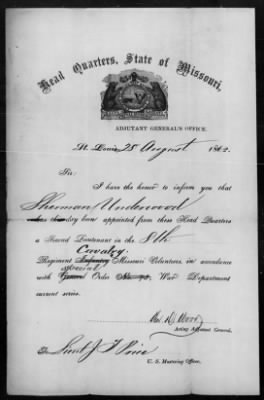 Head Quarters, State of Missouri,
ADJUTANT GENERAL'S OFFICE.
St. Louis 25 August 1862.
Sir:
I have the honor to inform you that
Sherman Underwood
has this day been appointed from these Head Quarters
a Second Lieutenant in the 8th
Cavalry
Regiment Infantry Missouri Volunteers, in accordance
special
with General Order No. 99, War Department
current series.
Acting Adjutant General.
To Lieut J F
U. S. Mustering Officer.